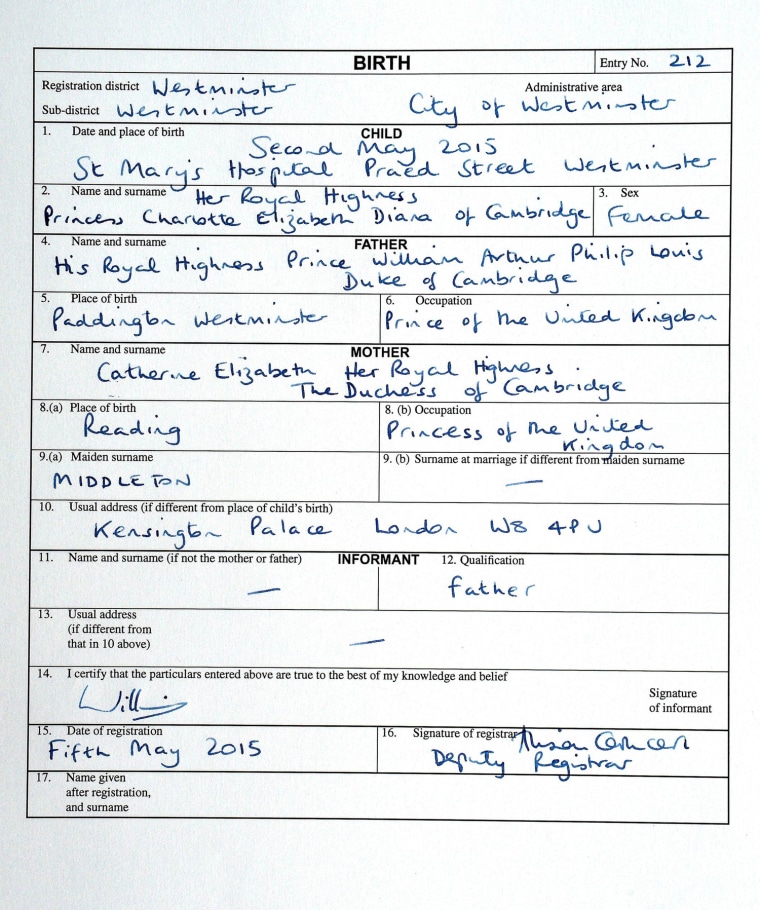 BIRTH
Entry No. 212
Registration district Westminster
Administrative area
Sub-district Westminster
City of Westminster
1. Date and place of birth
CHILD
Second May 2015
St Mary's Hospital Praed Street Westminster
2. Name and surname Her Royal Highness
3. Sex
Princess Charlotte Elizabeth Diana of Cambridge
Female
4. Name and surname
FATHER
His Royal Highness Prince William Arthur Philip Louis
Duke of Cambridge
5. Place of birth
6. Occupation
Paddington Westminster
Prince of the United Kingdom
7. Name and surname
MOTHER
Catherine Elizabeth Her Royal Highness
The Duchess of Cambridge
8.(a) Place of birth
8. (b) Occupation
Reading
Princess of the United
Kingdom
9.(a) Maiden surname
9. (b) Surname at marriage if different from maiden surname
MIDDLETON
—
10. Usual address (if different from place of child's birth)
Kensington Palace London W8 4PU
11. Name and surname (if not the mother or father)
INFORMANT
12. Qualification
—
Father
13. Usual address
(if different from
that in 10 above)
—
14. I certify that the particulars entered above are true to the best of my knowledge and belief
Signature
of informant
15. Date of registration
16. Signature of registrar
Fifth May 2015
Deputy Registrar
17. Name given
after registration,
and surname